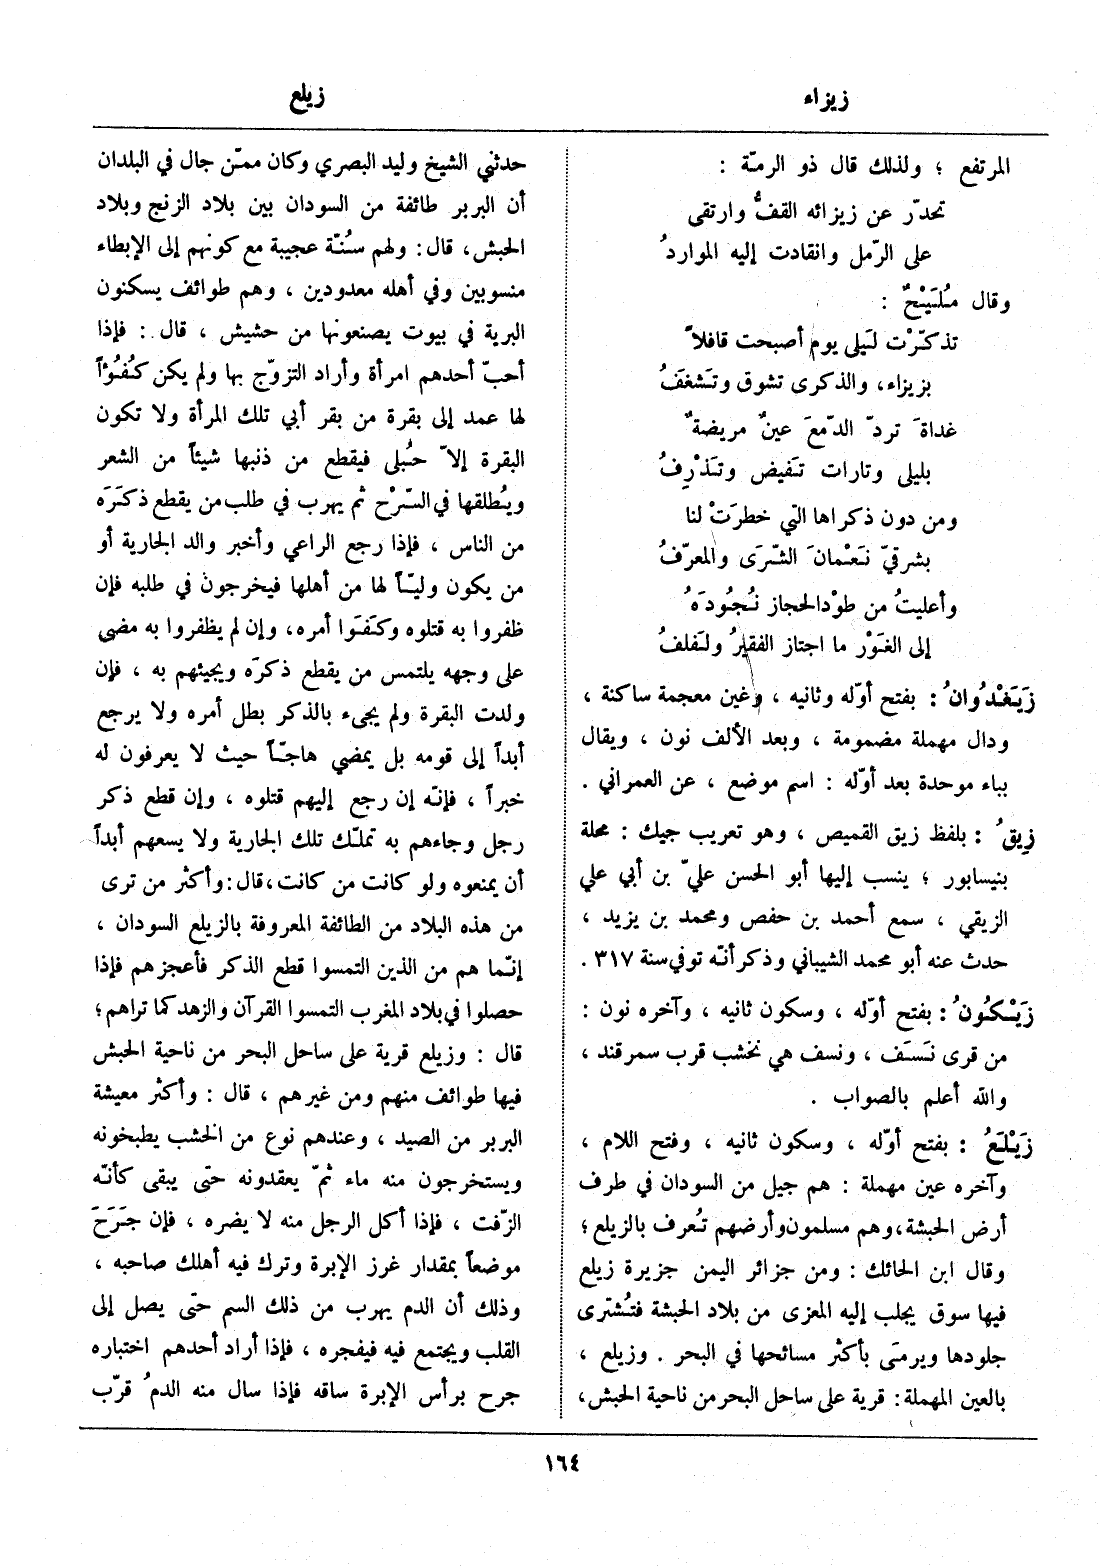 زيزاء
زيلع
المرتفع ؛ ولذلك قال ذو الرمّة :
تحدّر عن زيزائه القفُّ وارتقى
على الرّمل وانقادت إليه المواردُ
وقال مُلَيْحٌ :
تذكّرْت لَيلى يوم أصبحت قافلاً
بزيزاء، والذكرى تشوق وتَشغَفُ
غداةَ تردّ الدّمعَ عينٌ مريضةٌ
بليلى وتارات تَفيض وتَذْرِفُ
ومن دون ذكراها التي خطرَتْ لنا
بشرقيّ نَعْمانَ الشّرَى والمعرّفُ
وأعليتُ من طوْد الحجاز نُجُودَهُ
إلى الغَوْر ما اجتاز الفقيرُ ولَفلفُ
زَيَغْدُوانُ : بفتح أوّله وثانيه ، وغين معجمة ساكنة ،
ودال مهملة مضمومة ، وبعد الألف نون ، ويقال
بباء موحدة بعد أوّله : اسم موضع ، عن العمراني .
زِيقُ : بلفظ زيق القميص ، وهو تعريب جيك : محلة
بنيسابور ؛ ينسب إليها أبو الحسن عليّ بن أبي علي
الزيقي ، سمع أحمد بن حفص ومحمد بن يزيد ،
حدث عنه أبو محمد الشيباني وذكر أنّه توفي سنة ٣١٧ .
زَيْكُونُ : بفتح أوّله ، وسكون ثانيه ، وآخره نون :
من قرى نَسَف ، ونسف هي نخشب قرب سمرقند ،
والله أعلم بالصواب .
زَيْلَعُ : بفتح أوّله ، وسكون ثانيه ، وفتح اللام ،
وآخره عين مهملة : هم جيل من السودان في طرف
أرض الحبشة، وهم مسلمون وأرضهم تُعرف بالزيلع ؛
وقال ابن الحائك : ومن جزائر اليمن جزيرة زيلع
فيها سوق يجلب إليه المعزى من بلاد الحبشة فتُشترى
جلودها ويرمَى بأكثر مسائحها في البحر . وزيلع ،
بالعين المهملة : قرية على ساحل البحر من ناحية الحبش،
حدثني الشيخ وليد البصري وكان ممّن جال في البلدان
أن البربر طائفة من السودان بين بلاد الزنج وبلاد
الحبش، قال : ولهم سُنّة عجيبة مع كونهم إلى الإبطاء
منسوبين وفي أهله معدودين ، وهم طوائف يسكنون
البرية في بيوت يصنعونها من حشيش ، قال : فإذا
أحبّ أحدهم امرأة وأراد التزوّج بها ولم يكن كُفُوْاً
لها عمد إلى بقرة من بقر أبي تلك المرأة ولا تكون
البقرة إلاّ حُبلى فيقطع من ذنبها شيئاً من الشعر
ويُطلقها في السّرْح ثم يهرب في طلب من يقطع ذكَرَه
من الناس ، فإذا رجع الراعي وأخبر والد الجارية أو
من يكون وليّاً لها من أهلها فيخرجون في طلبه فإن
ظفروا به قتلوه وكَفَوا أمره، وإن لم يظفروا به مضى
على وجهه يلتمس من يقطع ذكرَه ويجيئهم به ، فإن
ولدت البقرة ولم يجىء بالذكر بطل أمره ولا يرجع
أبداً إلى قومه بل يمضي هاجّاً حيث لا يعرفون له
خبراً ، فإنّه إن رجع إليهم قتلوه ، وإن قطع ذكر
رجل وجاءهم به تملّك تلك الجارية ولا يسعهم أبداً
أن يمنعوه ولو كانت من كانت، قال : وأكثر من ترى
من هذه البلاد من الطائفة المعروفة بالزيلع السودان ،
إنّما هم من الذين التمسوا قطع الذكر فأعجزهم فإذا
حصلوا في بلاد المغرب التمسوا القرآن والزهد كما تراهم ؛
قال : وزيلع قرية على ساحل البحر من ناحية الحبش
فيها طوائف منهم ومن غيرهم ، قال : وأكثر معيشة
البربر من الصيد ، وعندهم نوع من الخشب يطبخونه
ويستخرجون منه ماء ثمّ يعقدونه حتّى يبقى كأنّه
الزّفت ، فإذا أكل الرجل منه لا يضره ، فإن جَرَحَ
موضعاً بمقدار غرز الإبرة وترك فيه أهلك صاحبه ،
وذلك أن الدم يهرب من ذلك السم حتّى يصل إلى
القلب ويجتمع فيه فيفجره ، فإذا أراد أحدهم اختباره
جرح برأس الإبرة ساقه فإذا سال منه الدمُ قرّب
١٦٤